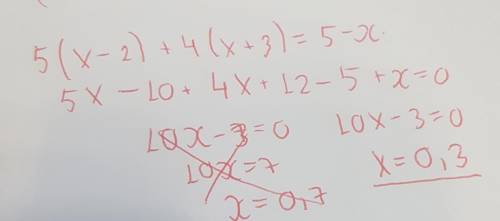 5(x-2)+4(x+3)=5-x.
5x-10+4x+12-5+x=0
10x-3=0
10x=7
x=0,7
10x-3=0
x=0,3